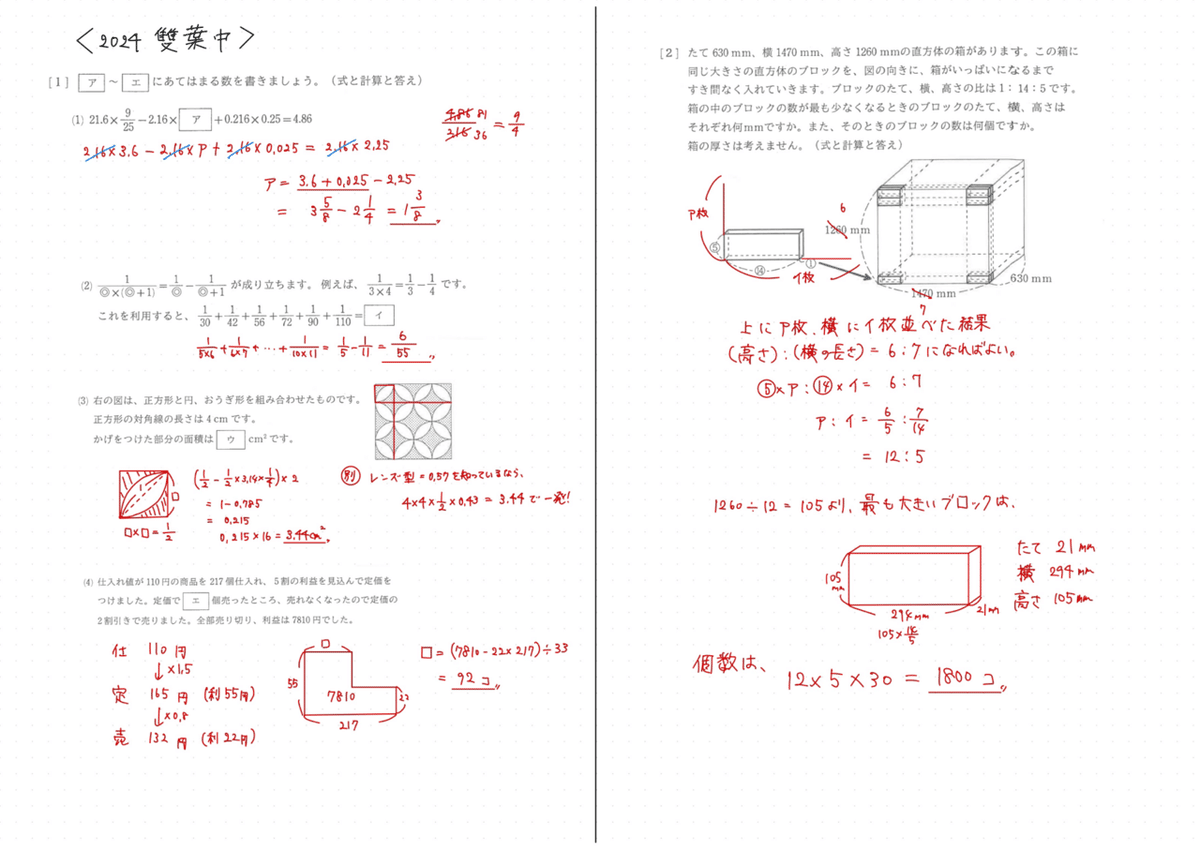 <2024 雙葉中>
[1] ア ～ エ にあてはまる数を書きましょう。（式と計算と答え）
(1) 21.6×9/25−2.16× ア +0.216×0.25=4.86
486 81/216 36 = 9/4
2.16×3.6 − 2.16×ア + 2.16×0.025 = 2.16×2.25
ア = 3.6+0.025 − 2.25
= 3 5/8 − 2 1/4 = 1 3/8
(2) 1/◎×(◎+1)=1/◎−1/◎+1 が成り立ちます。例えば、1/3×4=1/3−1/4 です。
これを利用すると、1/30+1/42+1/56+1/72+1/90+1/110= イ
1/5×6+1/6×7+…+1/10×11=1/5−1/11=6/55
(3) 右の図は、正方形と円、おうぎ形を組み合わせたものです。
正方形の対角線の長さは 4 cm です。
かげをつけた部分の面積は ウ cm² です。
1
□
□×□=1/2
(1/2−1/2×3.14×1/4)×2
= 1−0.785
= 0.215
0.215×16=3.44cm²
別 レンズ型=0.57を知っているなら、
4×4×1/2×0.43=3.44で一発!
(4) 仕入れ値が 110 円の商品を 217 個仕入れ、5 割の利益を見込んで定価を
つけました。定価で エ 個売ったところ、売れなくなったので定価の
2 割引きで売りました。全部売り切り、利益は 7810 円でした。
仕 110円
↓×1.5
定 165円 (利55円)
↓×0.8
売 132円 (利22円)
□
55
7810
22
217
□=(7810−22×217)÷33
= 92コ
[2] たて 630 mm、横 1470 mm、高さ 1260 mmの直方体の箱があります。この箱に
同じ大きさの直方体のブロックを、図の向きに、箱がいっぱいになるまで
すき間なく入れていきます。ブロックのたて、横、高さの比は 1：14：5 です。
箱の中のブロックの数が最も少なくなるときのブロックのたて、横、高さは
それぞれ何mmですか。また、そのときのブロックの数は何個ですか。
箱の厚さは考えません。（式と計算と答え）
ア枚
6
1260 mm
⑤
⑭
①
イ枚
630 mm
1470 mm
7
上にア枚、横にイ枚並べた結果
(高さ):(横の長さ)=6:7になればよい。
⑤×ア:⑭×イ=6:7
ア:イ=6/5:7/14
=12:5
1260÷12=105より、最も大きいブロックは、
105mm
294mm
105×14/5
21mm
たて 21mm
横 294mm
高さ 105mm
個数は、
12×5×30=1800コ